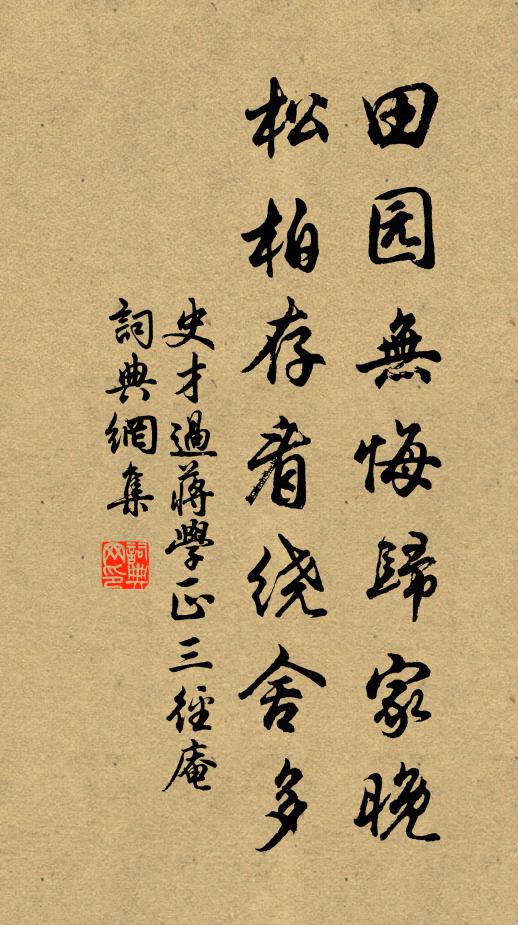 田园無悔歸家晚
松柏存看绕舍多
史才過蔣學正三徑庵
詞典網集
詞典網印